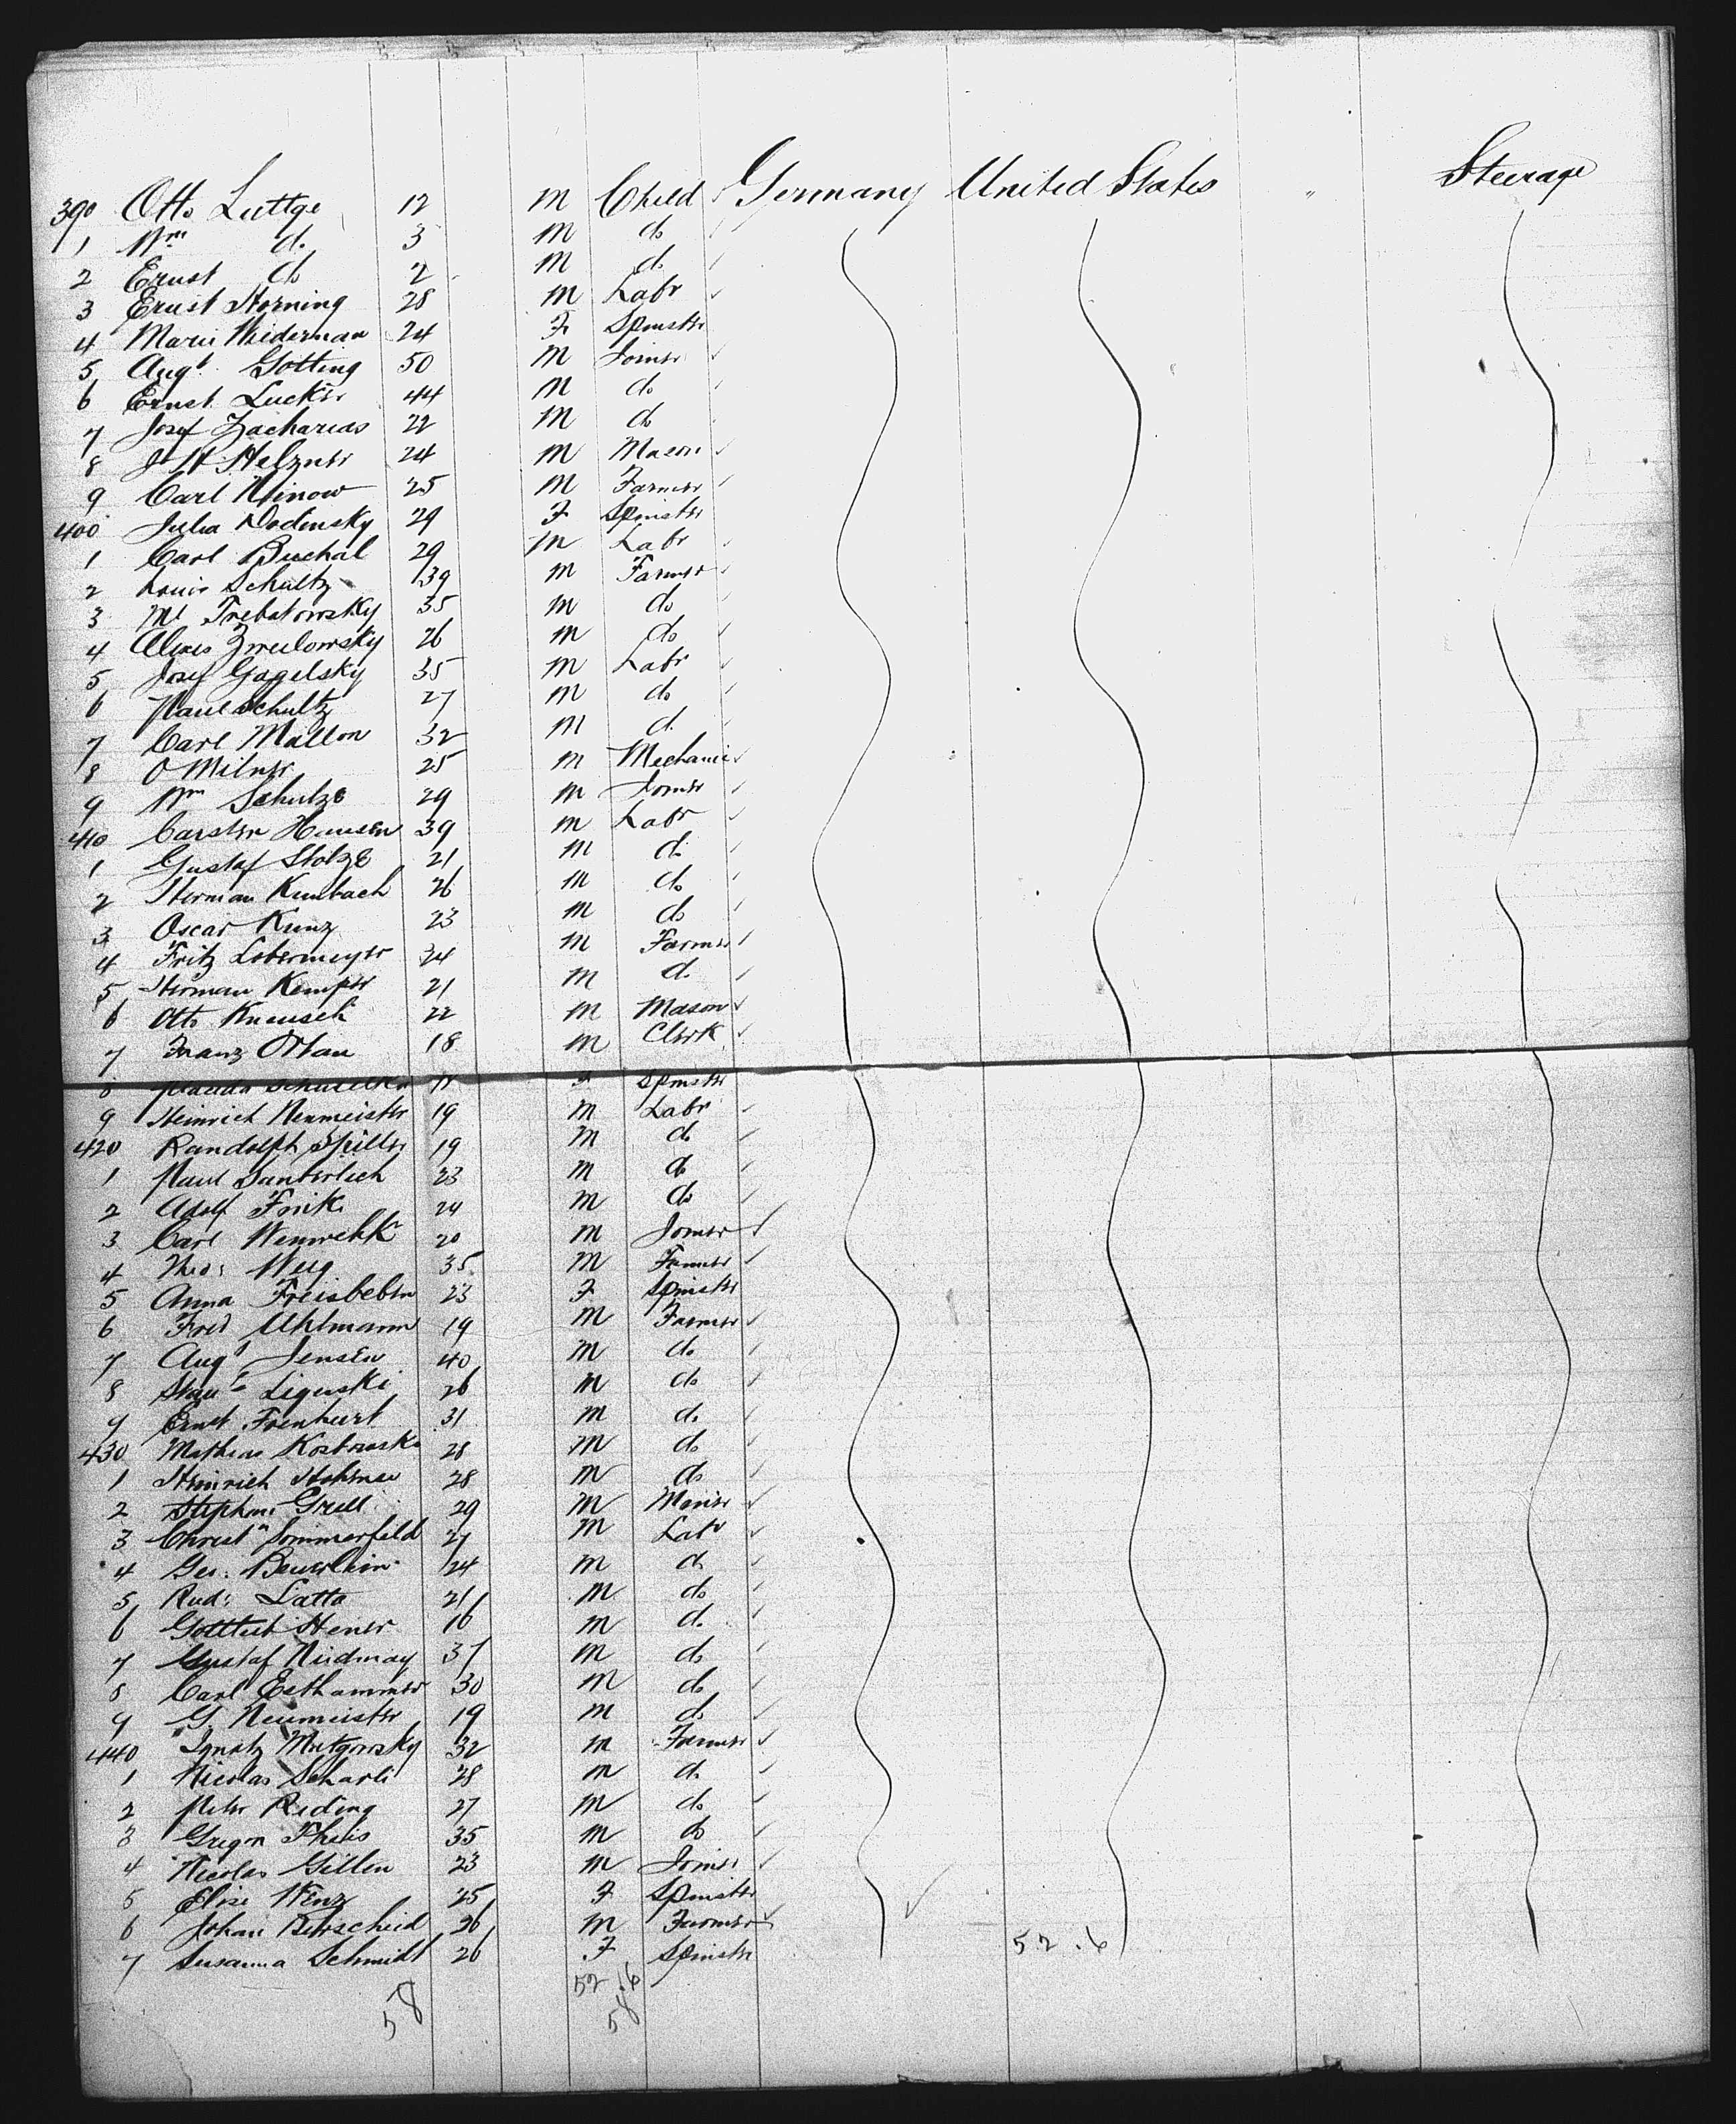 390 Otto Luttge 12 M Child Germany United States " Steerage
1 Wm do 3 M do
2 Ernst do 2 M do
3 Ernst Horning 28 M Labr
4 Marie Niederman 24 F Spinstr
5 Augt Gotting 50 M Joiner
6 Ernst Lucker 44 M do
7 Josef Zacharias 22 M do
8 J H Helzner 24 M Mason
9 Carl Minow 25 M Farmer
400 Julia Dodensky 29 F Spinstr
1 Carl Buchal 29 M Labr
2 Louis Schultz 39 M Farmer
3 Ml Trebatowsky 35 M do
4 Alexis 26 M do
5 Josef Gagelsky 35 M Labr
6 Paul Schultz 27 M do
7 Carl Mallon 32 M do
8 O Milner 25 M Mechanic
9 Wm Schulze 29 M Joiner
410 Carsten Hansen 39 M Labr
1 Gustaf Stolze 21 M do
2 Herman Kumbach 26 M do
3 Oscar Kunz 23 M do
4 Fritz Lobermeyer 24 M Farmer
5 Herman Kemper 21 M do
6 Otto 22 M Mason
7 Franz Ortau 18 M Clerk
8 F Spinstr
9 Heinrich Neumeister 19 M Labr
420 Randolph Spiller 19 M do
1 Paul Sauberlich 23 M do
2 Adolf Frik 24 M do
3 Carl 20 M Joiner
4 Theo: Weig 35 M Farmer
5 Anna Freisbeben 23 F Spinstr
6 Fred Uhlmann 19 M Farmer
7 Augt Jensen 40 M do
8 Stans Liguski 26 M do
9 Ernst 31 M do
430 Mathias 28 M do
1 Heinrich Hohman 28 M do
2 Stephan Grell 29 M
3 Christn Sommerfeld 27 M Labr
4 Geo: Beuerlein 24 M do
5 Rud: Latta 21 M do
6 Gottlieb Hener 16 M do
7 Gustaf Niedmay 37 M do
8 Carl Esthammer 30 M do
9 G. Neumeister 19 M do
440 Ignatz 32 M Farmer
1 Nicolas Scharli 28 M do
2 Peter Reding 27 M do
3 Gregor Theis 35 M do
4 Nicolas Gillen 23 M Joiner
5 Elise Wenz 25 F Spinstr
6 Johan Berscheid 26 M Farmer
7 Susanna Schmidt 26 F Spinstr 52.6
52.6
58 58